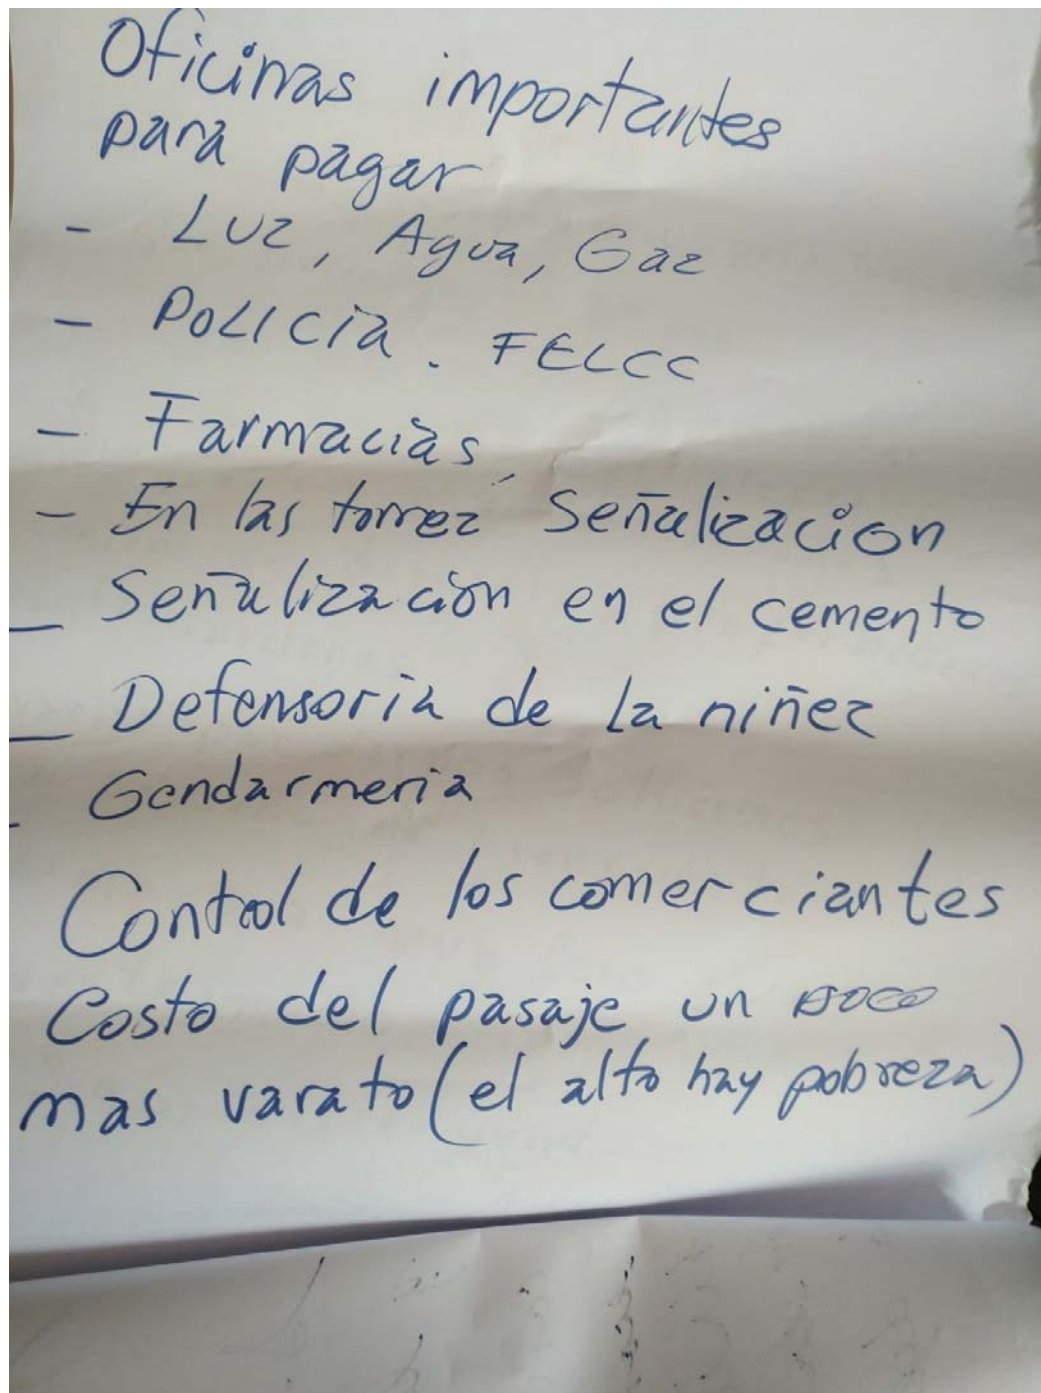 Oficinas importantes
para pagar
- Luz, Agua, Gaz
- Policía. FELCC
- Farmacias,
- En las torrez Señalizacion
- Señalización en el cemento
- Defensoria de la niñez
- Gendarmeria
Control de los comerciantes
Costo del pasaje un poco
mas varato (el alto hay pobreza)